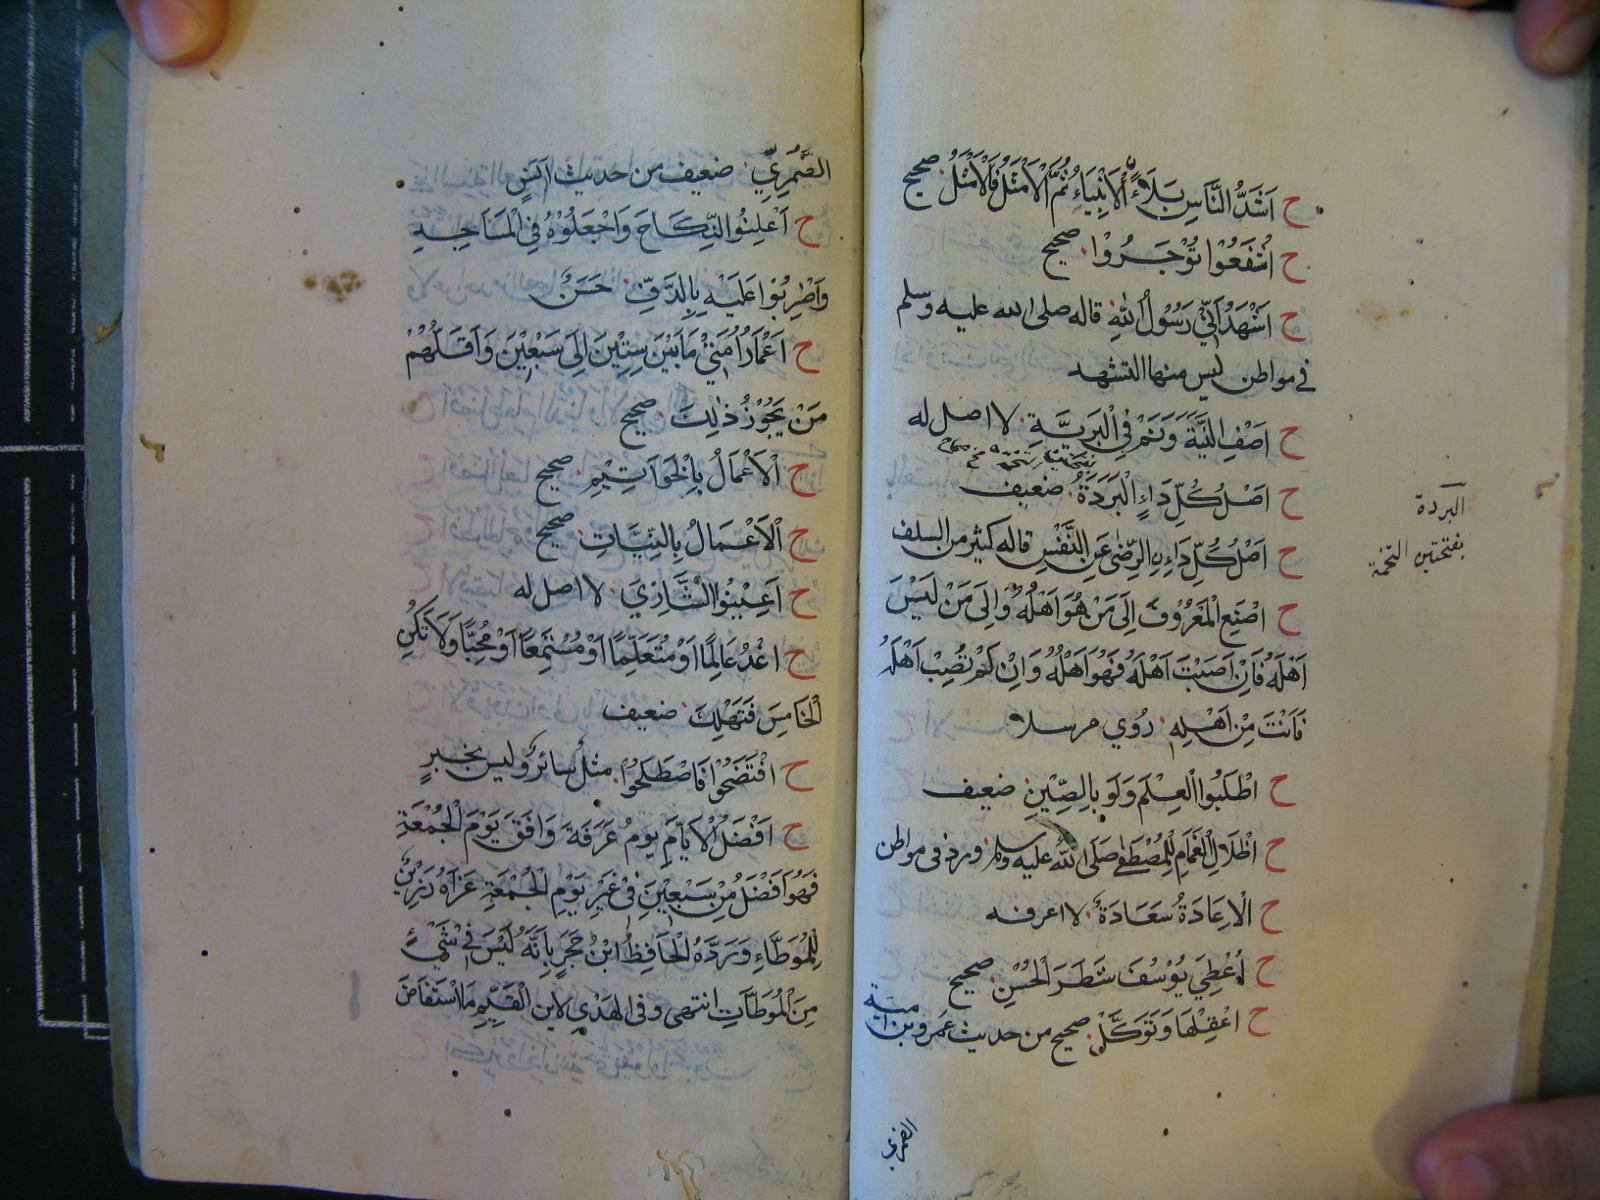 ح اَشَدُّ النَّاسِ بَلَاءً الْاَنْبِيَاءُ ثُمَّ الْاَمْثَلُ فَالْاَمْثَلُ صحيح
ح اُشْفَعُوا تُوْجَرُوْا صحيح
ح اَشْهَدُ اَنِّيْ رَسُوْلُ اللهِ قاله صلى الله عليه وسلم
في مواطن ليس منها التشهد
ح اَصْفِ النِّيَّةَ وَنَمْ فِي الْبَرِيَّةِ لا اصل له
ح اَصْلُ كُلِّ دَاءٍ الْبَرَدَةُ ضعيف
البردة
بفتحتين التخمة
ح اَصْلُ كُلِّ دَاءٍ الرِّضٰى عَنِ النَّفْسِ قاله كثير من السلف
ح اصْنَعِ الْمَعْرُوْفَ اِلَى مَنْ هُوَ اَهْلُهُ وَاِلَى مَنْ لَيْسَ
اَهْلَهُ فَاِنْ اَصَبْتَ اَهْلَهُ فَهُوَ اَهْلُهُ وَاِنْ لَمْ تُصِبْ اَهْلَهُ
فَاَنْتَ مِنْ اَهْلِهِ رُوي مرسلا
ح اُطْلُبُوا الْعِلْمَ وَلَوْ بِالصِّيْنِ ضعيف
ح اظْلَالُ الْغَمَامِ لِلْمُصْطَفٰى صَلَّى اللهُ عليه وسلم ورد في مواطن
ح الْاِعَادَةُ سَعَادَةٌ لا اعرفه
ح اُعْطِيَ يُوْسُفُ شَطَرَ الْحُسْنِ صحيح
ح اعْقِلْهَا وَتَوَكَّلْ صحيح من حديث عَمرو بن امية
الضمري
الضَّمْرِيِّ ضعيف من حديث اَنَسٍ
ح اَعْلِنُوا النِّكَاحَ وَاجْعَلُوْهُ فِي الْمَسَاجِدِ
وَاضْرِبُوْا عَلَيْهِ بِالدَّفِّ حَسَنٌ
ح اَعْمَارُ اُمَّتِيْ مَا بَيْنَ سِتِّيْنَ اِلَى سَبْعِيْنَ وَاَقَلُّهُمْ
مَنْ يَجُوْزُ ذٰلِكَ صحيح
ح الْاَعْمَالُ بِالْخَوَاتِيْمِ صحيح
ح الْاَعْمَالُ بِالنِّيَّاتِ صحيح
ح اَعِيْنُوا الشَّارِيَ لا اصل له
ح اغْدُ عَالِمًا اَوْ مُتَعَلِّمًا اَوْ مُسْتَمِعًا اَوْ مُحِبًّا وَلَا تَكُنِ
الْخَامِسَ فَتَهْلِكَ ضعيف
ح افْتَضَحُوْا فَاصْطَلَحُوْا مثل سائر وليس بخبرٍ
ح اَفْضَلُ الْاَيَّامِ يَوْمُ عَرَفَةَ وَافَقَ يَوْمَ الْجُمْعَةِ
فَهُوَ اَفْضَلُ مِنْ سَبْعِيْنَ فِيْ غَيْرِ يَوْمِ الْجُمْعَةِ عَزَاهُ رَزِيْنٌ
لِلْمُوَطَّاءِ وَرَدَّهُ الْحَافِظُ ابْنُ حَجَرٍ بِاَنَّهُ لَيْسَ فِيْ شَيْءٍ
مِنَ الْمُوَطَّآتِ انتهى وفي الهَدْيِ لابن الْقَيِّمِ مَا اسْتَفَاضَ